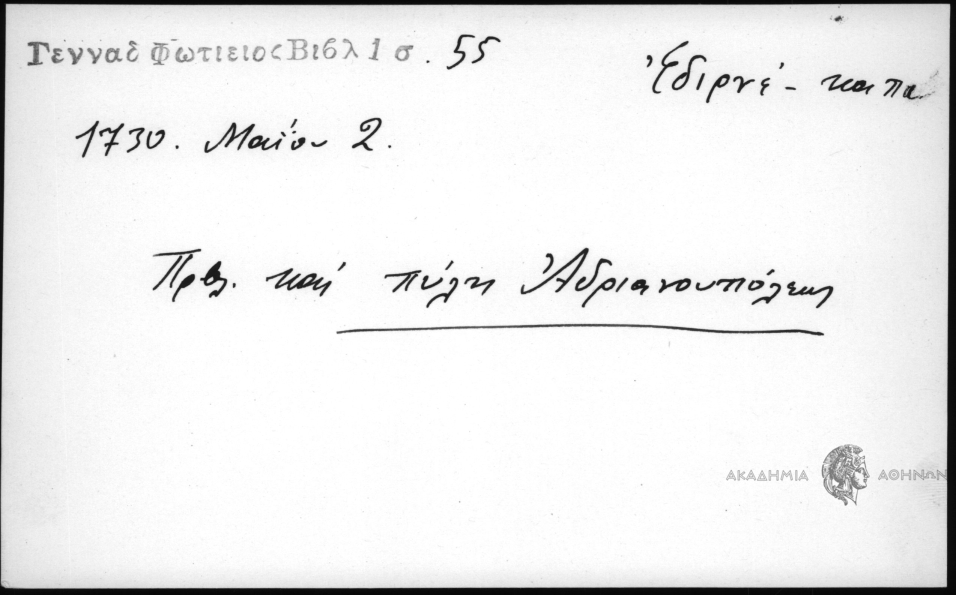 Γενναδ Φωτιειος Βιβλ 1 σ. 55
Ἐδιρνέ - καπα
1730. Μαΐου 2.
Πρβλ. καὶ πύλη Ἀδριανουπόλεως
ΑΚΑΔΗΜΙΑ ΑΘΗΝΩΝ